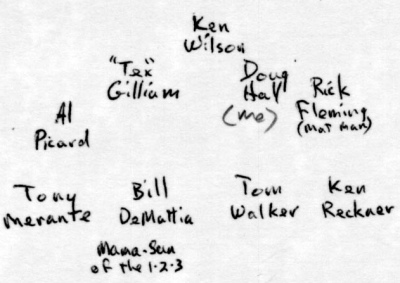 Ken
Wilson
"Tex"
Gilliam
Doug
Hall
(me)
Rick
Fleming
(mat man)
Al
Picard
Tony
Merante
Bill
DeMattia
Mama-San
of the 1-2-3
Tom
Walker
Ken
Reckner